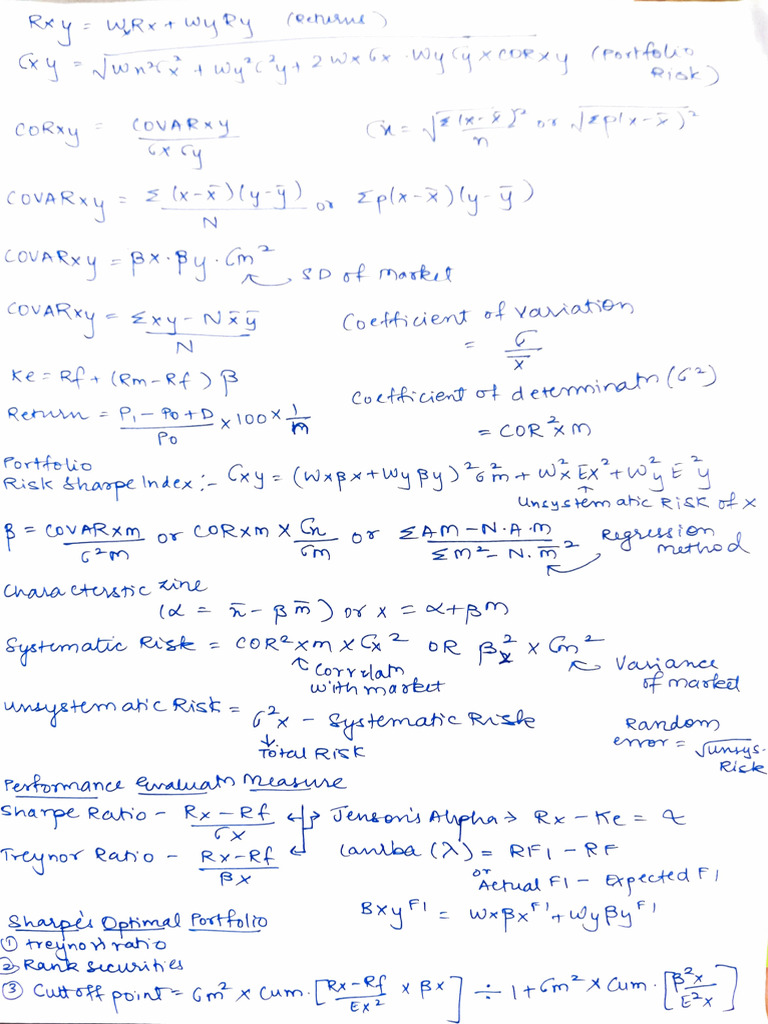 Rxy = WxRx + WyRy (Returns)
σxy = √Wn²σx² + Wy²σ²y + 2Wxσx · Wyσy × CORxy (Portfolio Risk)
CORxy = COVARxy / σx σy
σx = √Σ(x-x̄)²/n or √Σp(x-x̄)²
COVARxy = Σ(x-x̄)(y-ȳ) / N or Σp(x-x̄)(y-ȳ)
COVARxy = βx·βy·σm²
SD of market
COVARxy = Σxy - Nx̄ȳ / N
Coefficient of variation
= σ / x̄
Ke = Rf + (Rm-Rf)β
Coefficient of determinatn (σ²)
= COR²xm
Return = P₁ - P0 + D / P0 × 100 × 1/n
Portfolio
Risk Sharpe Index :- σxy = (Wxβx + Wyβy)²σ²m + W²xEx² + W²yE²y
Unsystematic Risk of x
β = COVARxm / σ²m or CORxm × σn / σm or ΣAM - N·A·M / ΣM² - N·M̄²
Regression method
Characterstic Line
(α = n̄ - βm̄) or x = α + βm
Systematic Risk = COR²xm × σx² OR βx² × σm²
Correlatn with market
Variance of market
Unsystematic Risk = σ²x - Systematic Risk
Total Risk
Random error = √unsys. Risk
Performance Evaluatn Measure
Sharpe Ratio - Rx - Rf / σx
Jenson's Alpha → Rx - Ke = α
Treynor Ratio - Rx-Rf / βx
Lamba (λ) = RF1 - RF
or
Actual F1 - Expected F1
Sharpe's Optimal Portfolio
Bxy^F1 = Wxβx^F1 + Wyβy^F1
① Treynor's ratio
② Rank securities
③ Cutt off point = σm² × Cum. [Rx-Rf / Ex² × βx] ÷ 1 + σm² × Cum. [β²x / E²x]